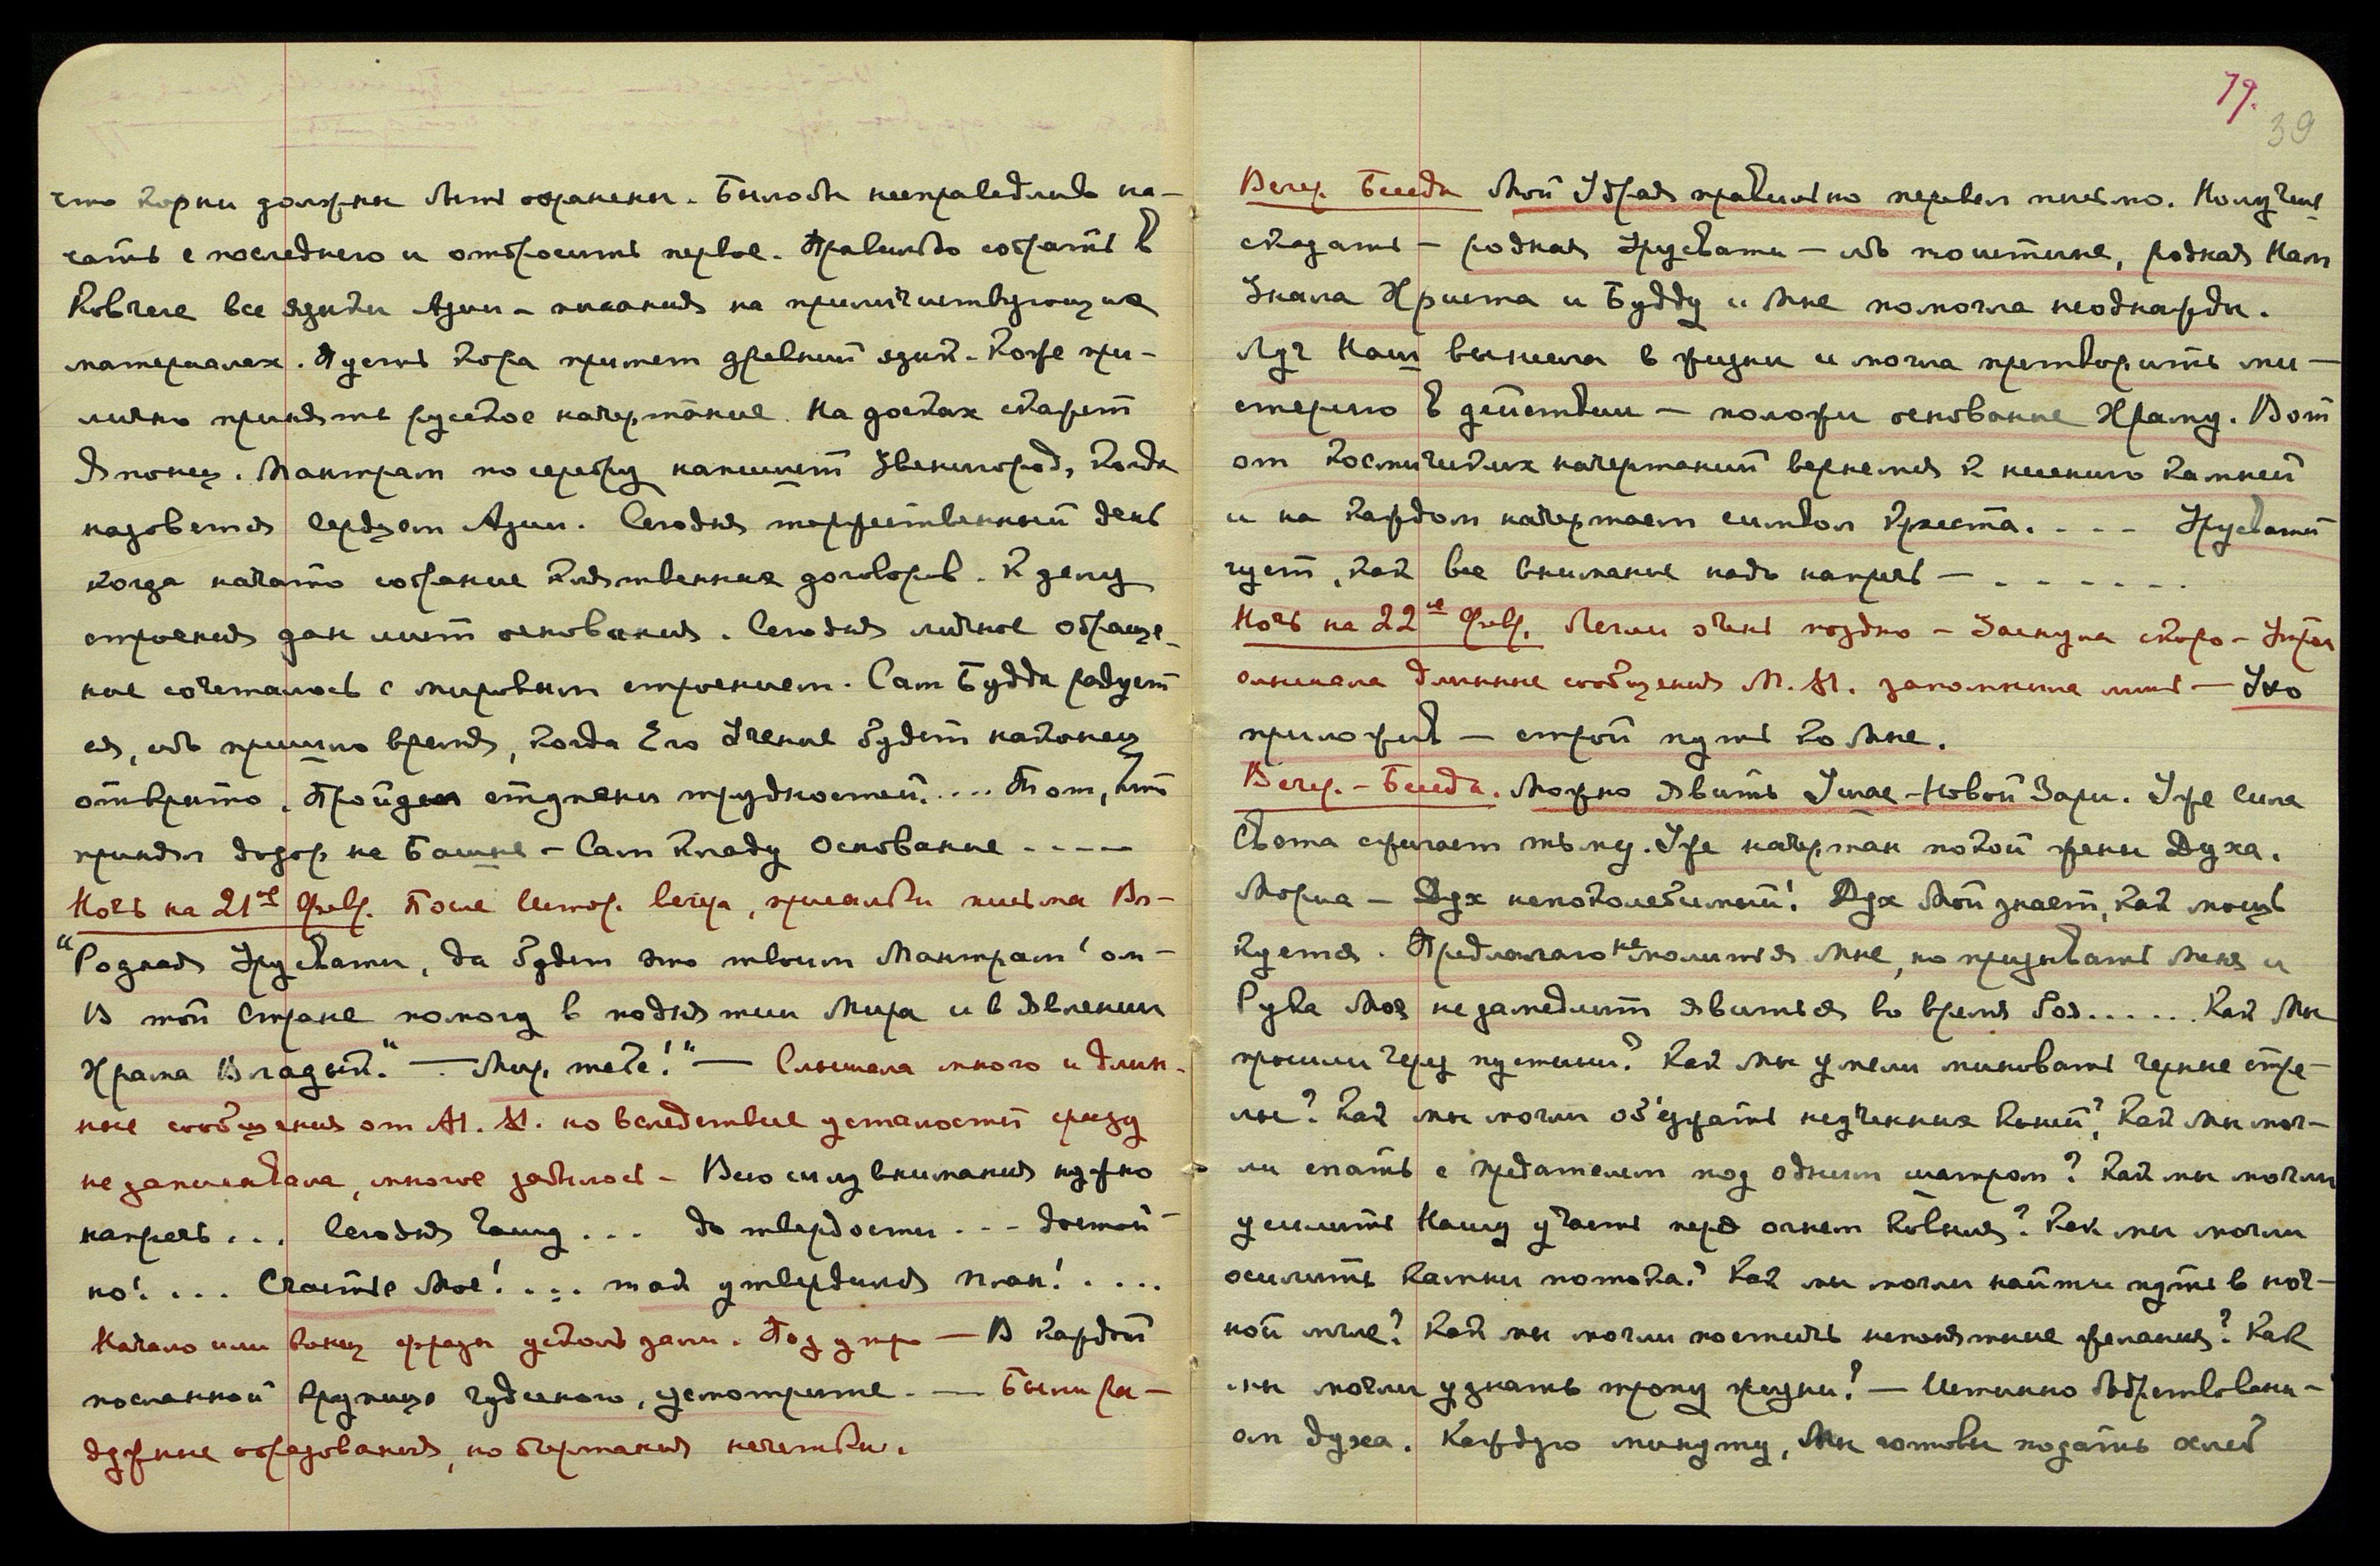 что корни должны быть охранены. Было бы несправедливо на-
чать с последнего и отбросить первое. Правильно собрать в
Ковчеге все языки Азии – писания на приличествующих
материалах. Пусть кора примет древний язык. Коже при-
лично принять русское начертание. На досках скажет
Японец. Мантрам по серебру напишет Звенигород, когда
назовется Сердцем Азии. Сегодня торжественный день
когда начато собрание клятвенных договоров. К делу
строения дан лист основания. Сегодня личное обраще-
ние сочеталось с мировым строением. Сам Будда радует
ся, ибо пришло время, когда Его Учение будет наконец
открыто. Пройдем ступени трудностей. .... Тот, кто
принял дозор на Башне – Сам кладу Основание ----
Ночь на 21ое Февр. После вечера, присылки письма Вл-
"Родная Урусвати, да будет это твоим Мантрам' ом –
В той Стране помогу в поднятии Мира и в явлении
Храма Владык." – Мир тебе!" – Слышала много и длин-
ные сообщения от М. М. но вследствие усталости сразу
не записывала, многое забылось – Всю силу внимания нужно
напрячь ... Сегодня Чашу ... до твердости --- достой-
но! ... Счастье Мое! .... так утвердился план! ....
Начало или конец фразы ускользали. Под утро – В каждой
посланной крупице чудесного, усмотрите. – Были ра-
дужные образования, но очертания нечетки.
79.
39
Вечер. Беседа Мой Убрая правильно перевел письмо. Поручение
сказать – родная Урусвати – ибо поистине, родная Нам
Знала Христа и Будду и Мне помогла неоднажды.
Луч Наш вынесла в жизни и могла претворить ми-
стерию в действии – положи основание Храму. Вот
от космических начертаний вернемся к несению камней
и на каждом начертаем символ Креста. --- Урусвати
чует, как все внимание надо напрячь – ......
Ночь на 22ое Февр. Легли очень поздно – Заснула скоро – Утром
слышала длинные сообщения М. М. запомнила лишь – Ухо
приложив – строй путь ко Мне.
Вечер. – Беседа. Можно явить Улас – Новой Зари. Уже Сила
Света сжигает тьму. Уже начертан покой жены Духа.
Мориа – Дух непоколебимый! Дух Мой знает, как мощь
куется. Предлагаю не молиться Мне, но призывать Меня и
Рука Моя не замедлит явиться во время боя...... Как Мы
прошли через пустыни? Как мы умели миновать черные стре-
лы? Как мы могли об'езжать неученых коней? Как мы мог-
ли спать с предателем под одним шатром? Как мы могли
усилить Нашу участь перед огнем кованья? Как мы могли
осилить камни потока? Как мы могли найти путь в ноч-
ной мгле? Как мы могли постичь непонятные желания? Как
мы могли узнать тропу жизни? – Истинно бодрствовани-
ем духа. Каждую минуту, Мы готовы подать хлеб